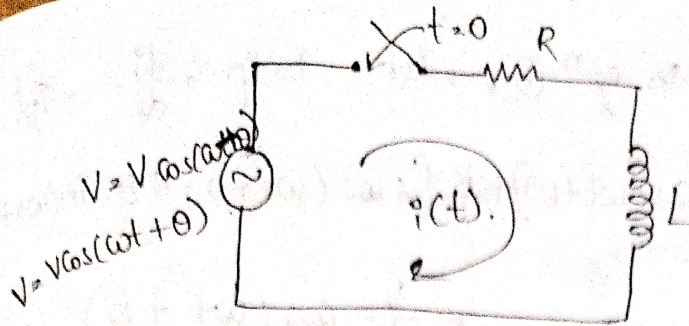 t=0
R
V=V cos(ωt+θ)
V=Vcos(ωt+θ)
i(t).
L